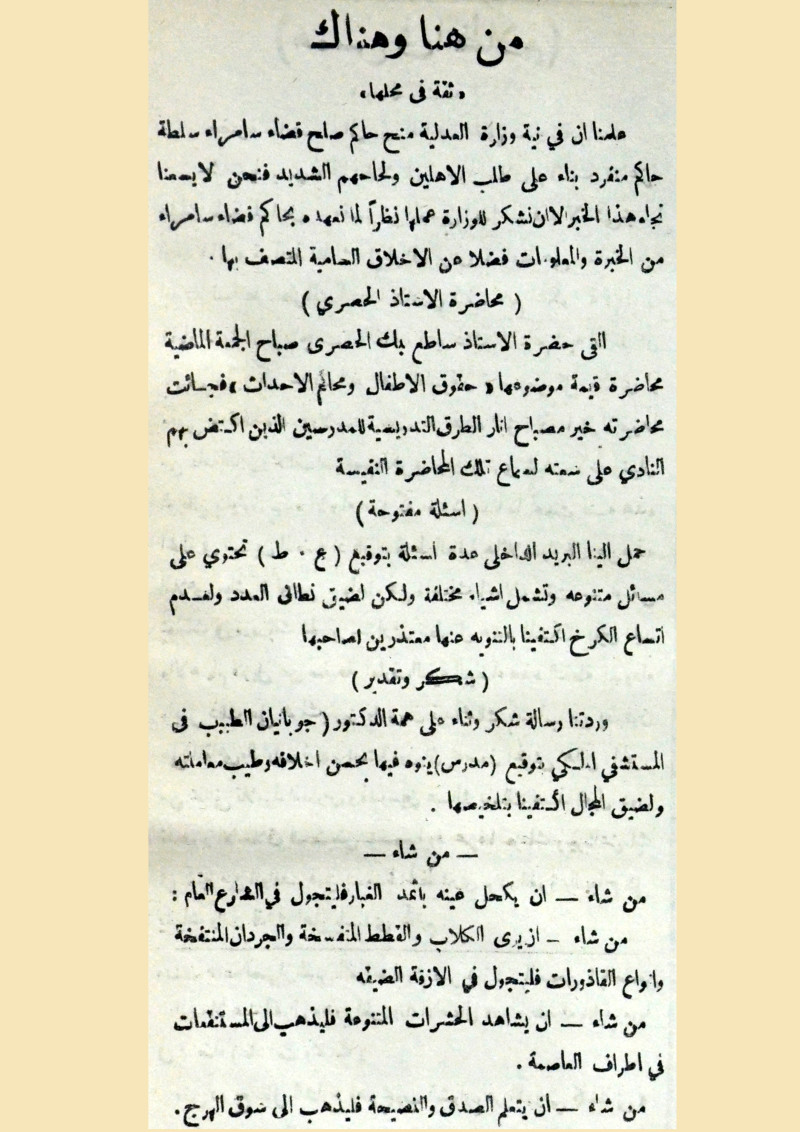 من هنا وهناك
« ثقة في محلها »
علمنا ان في نية وزارة العدلية منح حاكم صلح قضاء سامراء سلطة
حاكم منفرد بناء على طلب الاهلين ولحاحهم الشديد فنحن لا يسعنا
تجاه هذا الخبر الا ان نشكر للوزارة عملها نظراً لما نعهده بحاكم قضاء سامراء
من الخبرة والمعلومات فضلا عن الاخلاق السامية المتصف بها .
( محاضرة الاستاذ الحصري )
القى حضرة الاستاذ ساطع بك الحصرى صباح الجمعة الماضية
محاضرة قيمة موضوعها « حقوق الاطفال ومحاكم الاحداث » فجائت
محاضرته خير مصباح انار الطرق التدريسية للمدرسين الذين اكتض بهم
النادي على سعته لسماع تلك المحاضرة النفيسة
( اسئلة مفتوحة )
حمل الينا البريد الداخلى عدة اسئلة بتوقيع ( ع . ط ) تحتوي على
مسائل متنوعه وتشمل اشياء مختلفة ولكن لضيق نطاق العدد ولعدم
اتساع الكرخ اكتفينا بالتنويه عنها معتذرين لصاحبها
( شكر وتقدير )
وردتنا رسالة شكر وثناء على همة الدكتور ( جوبانيان الطبيب فى
المستشفي الملكي بتوقيع (مدرس) ينوه فيها بحسن اخلاقه وطيب معاملته
ولضيق المجال اكتفينا بتلخيصها .
— من شاء —
من شاء — ان يكحل عينه باثمد الغبار فليتجول في الشارع العام :
من شاء — ان يرى الكلاب والقطط المنفسخة والجردان المنتفخة
وانواع القاذورات فليتجول في الازقة الضيقه
من شاء — ان يشاهد الحشرات المتنوعة فليذهب الى المستنقعات
في اطراف العاصمة .
من شاء — ان يتعلم الصدق والنصيحة فليذهب الى سوق الهرج .